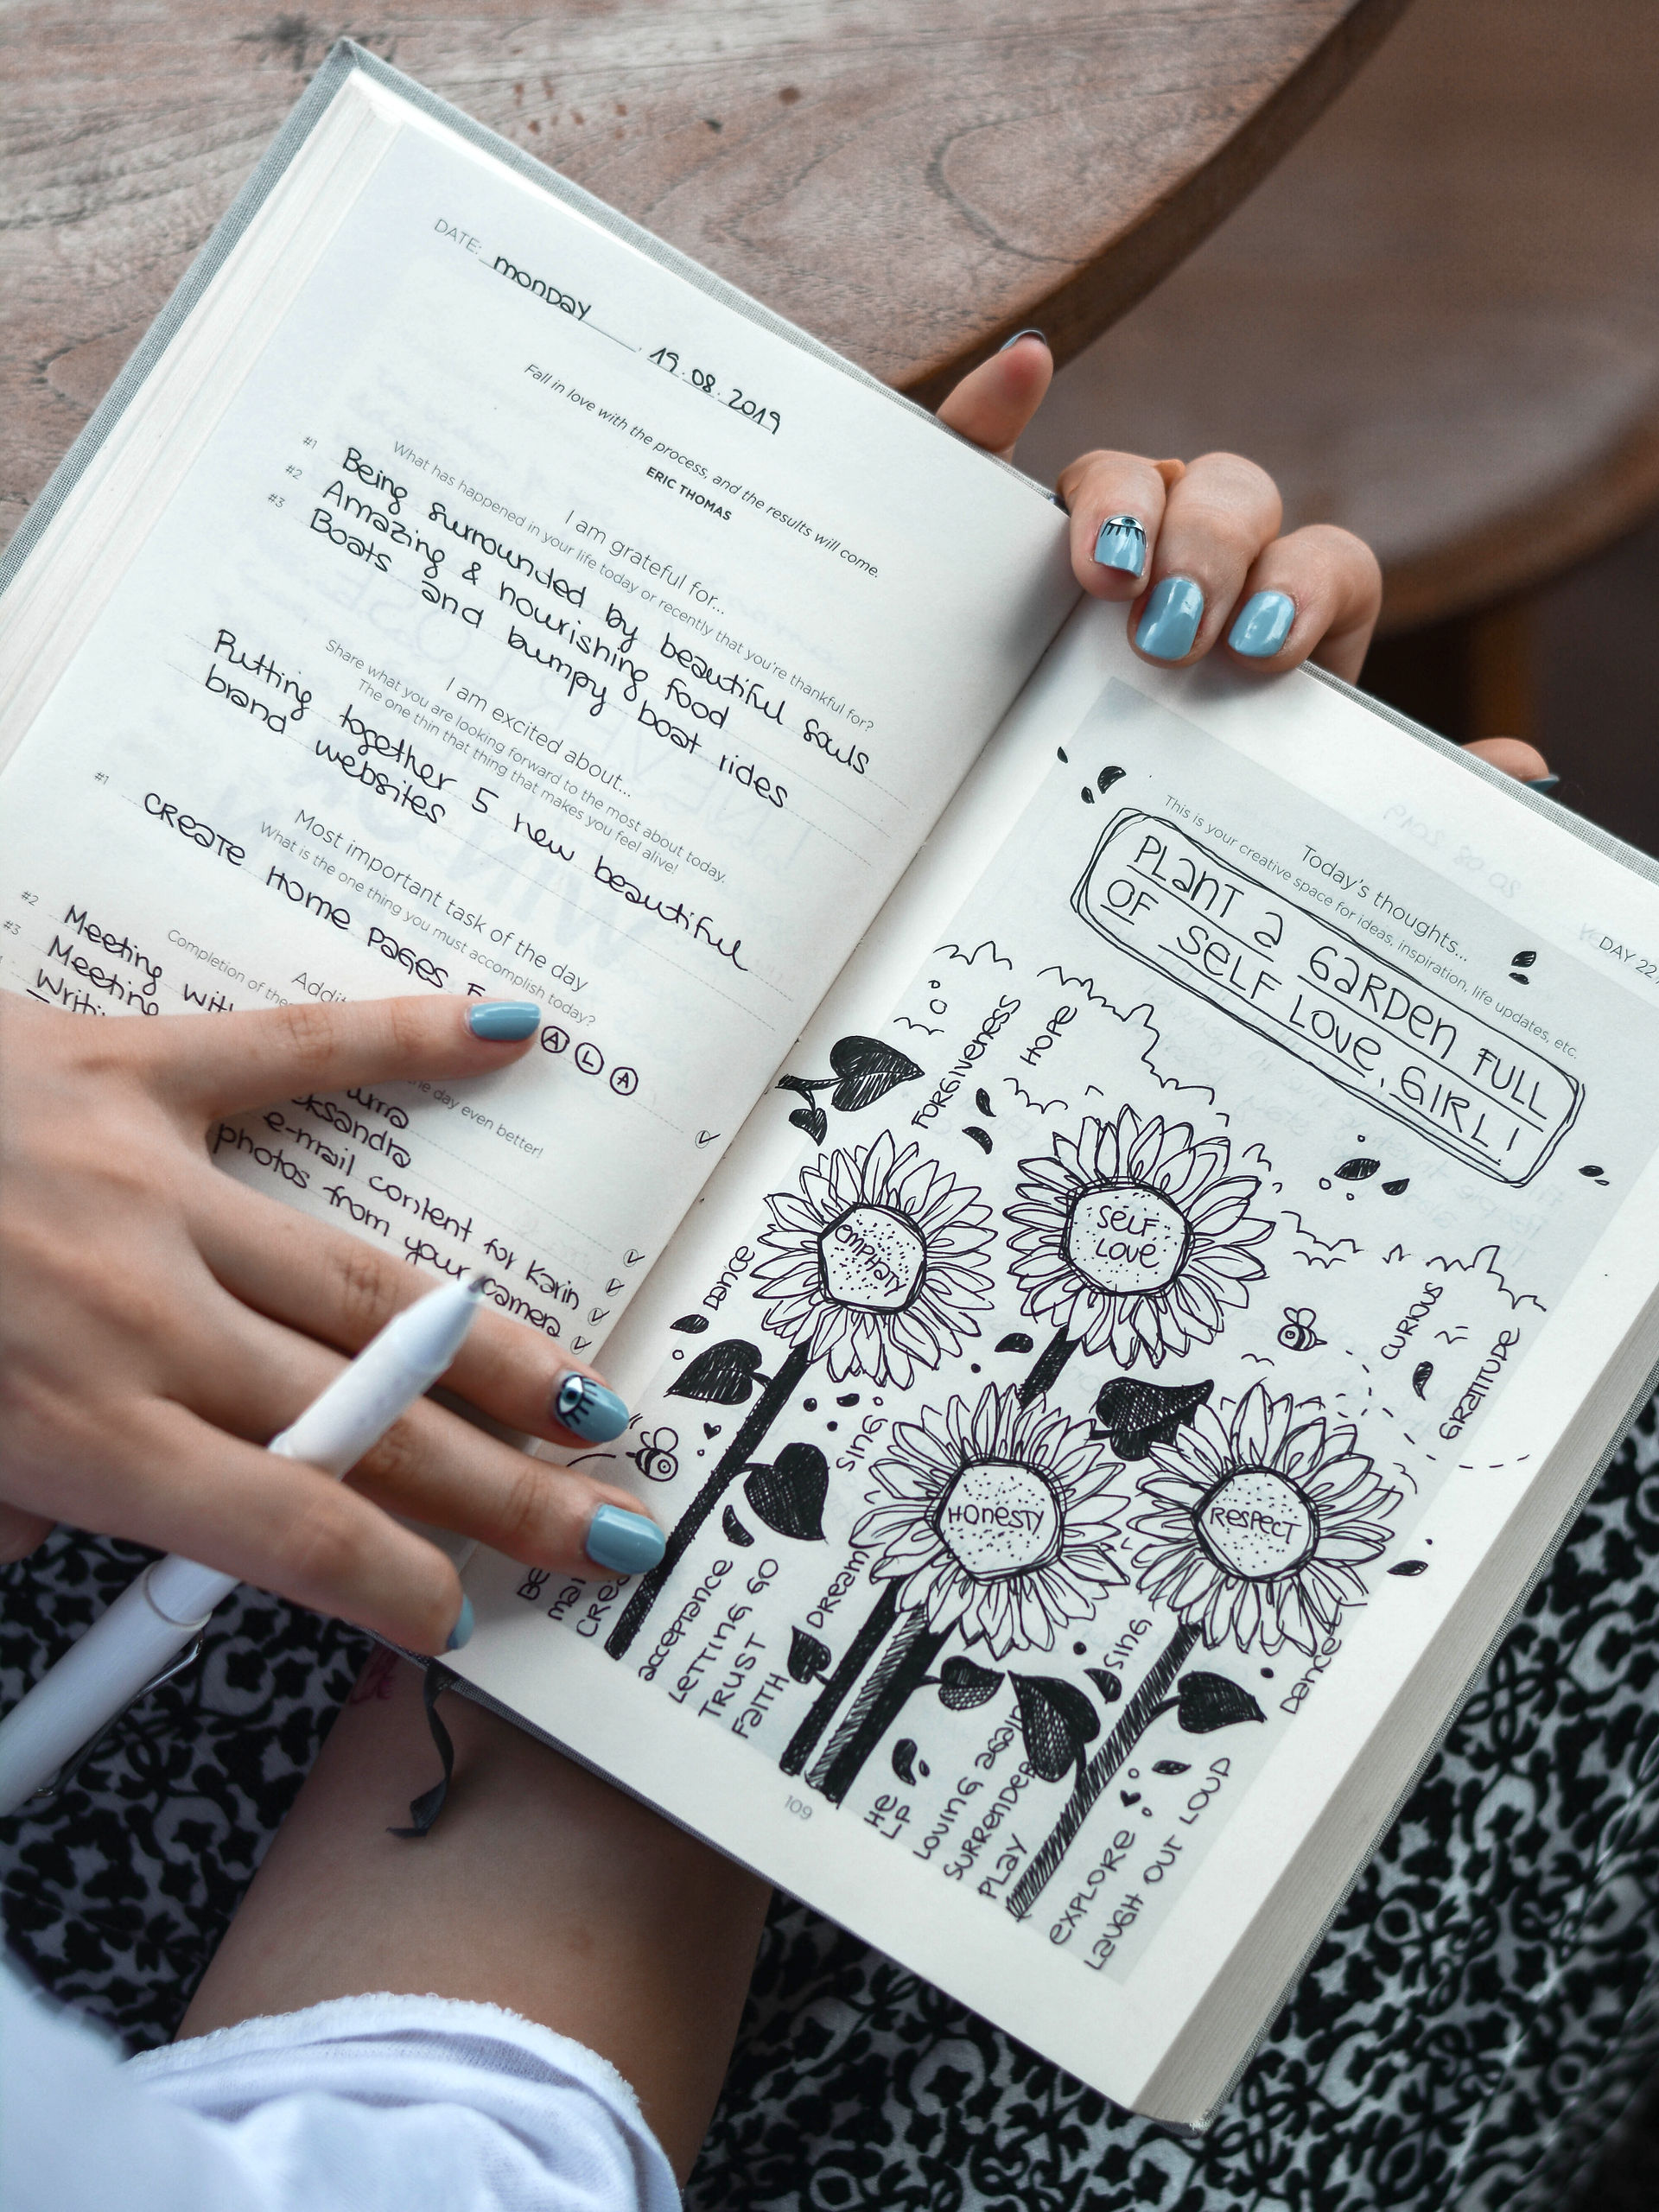 DATE: monday, 19.08.2019
Fall in love with the process, and the results will come.
ERIC THOMAS
I am grateful for...
What has happened in your life today or recently that you're thankful for?
#1 Being surrounded by beautiful souls
#2 Amazing & nourishing food
#3 Boats and bumpy boat rides
I am excited about...
Share what you are looking forward to the most about today.
The one thin that thing that makes you feel alive!
Putting together 5 new beautiful
brand websites
Most important task of the day
What is the one thing you must accomplish today?
#1 CREATE HOME PAGES
A L A
Completion of
day even better!
#2 Meeting
#3 Meeting
e-mail content for Karin
photos from your camera
DAY 22
Today's thoughts...
This is your creative space for ideas, inspiration, life updates, etc.
PLANT a GARDEN FULL
OF SELF LOVE, GIRL!
FORGIVENESS
HOPE
EMPHATY
SELF
LOVE
DANCE
CURIOUS
GRATITUDE
SING
HONESTY
RESPECT
acceptance
LETTING GO
TRUST
FAITH
DREAM
SING
DANCE
HE
LP
LOVING again
SURRENDER
PLAY
EXPLORE
LAUGH OUT LOUD
109